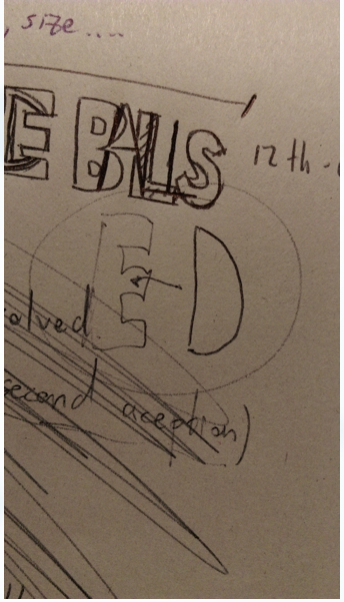 , size....
E BALLS 12th -
E D
olved
second aception)